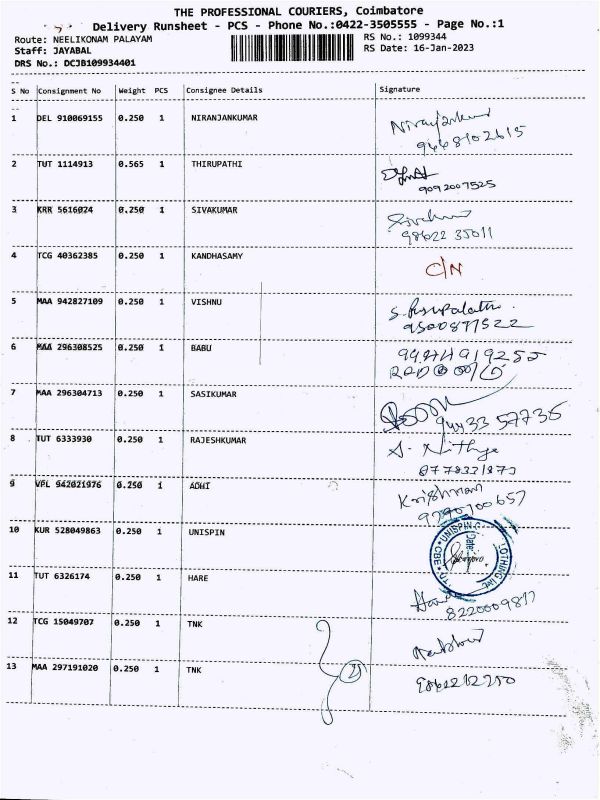 THE PROFESSIONAL COURIERS, Coimbatore
Delivery Runsheet - PCS - Phone No.:0422-3505555 - Page No.:1
Route: NEELIKONAM PALAYAM RS No.: 1099344
Staff: JAYABAL RS Date: 16-Jan-2023
DRS No.: DCJB109934401
S No Consignment No Weight PCS Consignee Details Signature
1 DEL 910069155 0.250 1 NIRANJANKUMAR
9448102615
2 TUT 1114913 0.565 1 THIRUPATHI
9092007525
3 KRR 5616024 0.250 1 SIVAKUMAR
98622 35011
4 TCG 40362385 0.250 1 KANDHASAMY C/N
5 MAA 942827109 0.250 1 VISHNU
9500877522
6 MAA 296308525 0.250 1 BABU
7 MAA 296304713 0.250 1 SASIKUMAR
94433 57735
8 TUT 6333930 0.250 1 RAJESHKUMAR S. Nithya
9 VPL 942021976 0.250 1 ADHI Krishnan
9790700657
10 KUR 528049863 0.250 1 UNISPIN
UNISPIN CLOTHING
CBE
Date:
11 TUT 6326174 0.250 1 HARE
8220009877
12 TCG 15049707 0.250 1 TNK
13 MAA 297191020 0.250 1 TNK 2